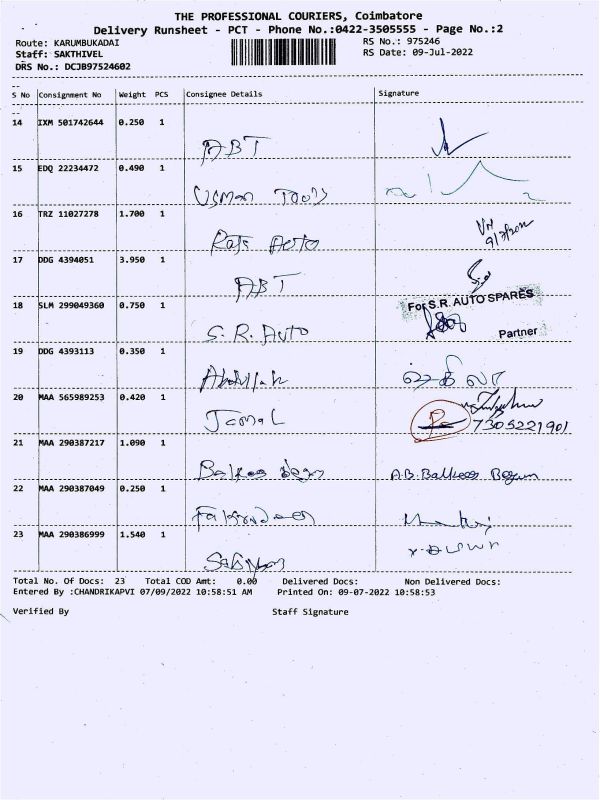 THE PROFESSIONAL COURIERS, Coimbatore
Delivery Runsheet - PCT - Phone No.:0422-3505555 - Page No.:2
Route: KARUMBUKADAI RS No.: 975246
Staff: SAKTHIVEL RS Date: 09-Jul-2022
DRS No.: DCJB97524602
S No Consignment No Weight PCS Consignee Details Signature
14 IXM 501742644 0.250 1
ABT
15 EDQ 22234472 0.490 1
Usman Tools
16 TRZ 11027278 1.700 1
Raja Auto 9/7/2022
17 DDG 4394051 3.950 1
ABT
For S.R. AUTO SPARES
18 SLM 299049360 0.750 1
S.R. Auto Partner
19 DDG 4393113 0.350 1
Abdullah
20 MAA 565989253 0.420 1
Jamal 7305221901
21 MAA 290387217 1.090 1
Balkees Begum A.B. Balkees Begum
22 MAA 290387049 0.250 1
23 MAA 290386999 1.540 1
Total No. Of Docs: 23 Total COD Amt: 0.00 Delivered Docs: Non Delivered Docs:
Entered By :CHANDRIKAPVI 07/09/2022 10:58:51 AM Printed On: 09-07-2022 10:58:53
Verified By Staff Signature